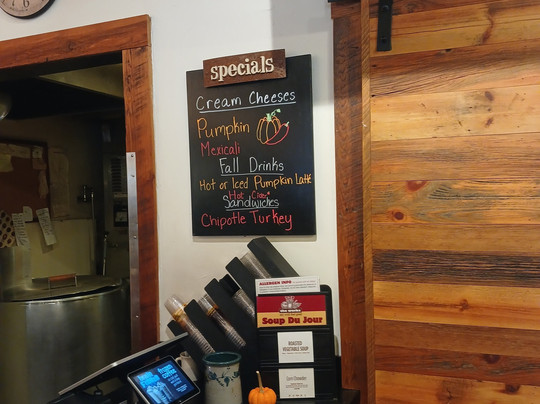 specials
Cream Cheeses
Pumpkin
Mexicali
Fall Drinks
Hot or Iced Pumpkin Latte
Hot Cider
Sandwiches
Chipotle Turkey
ALLERGEN INFO
Soup Du Jour
ROASTED
VEGETABLE SOUP